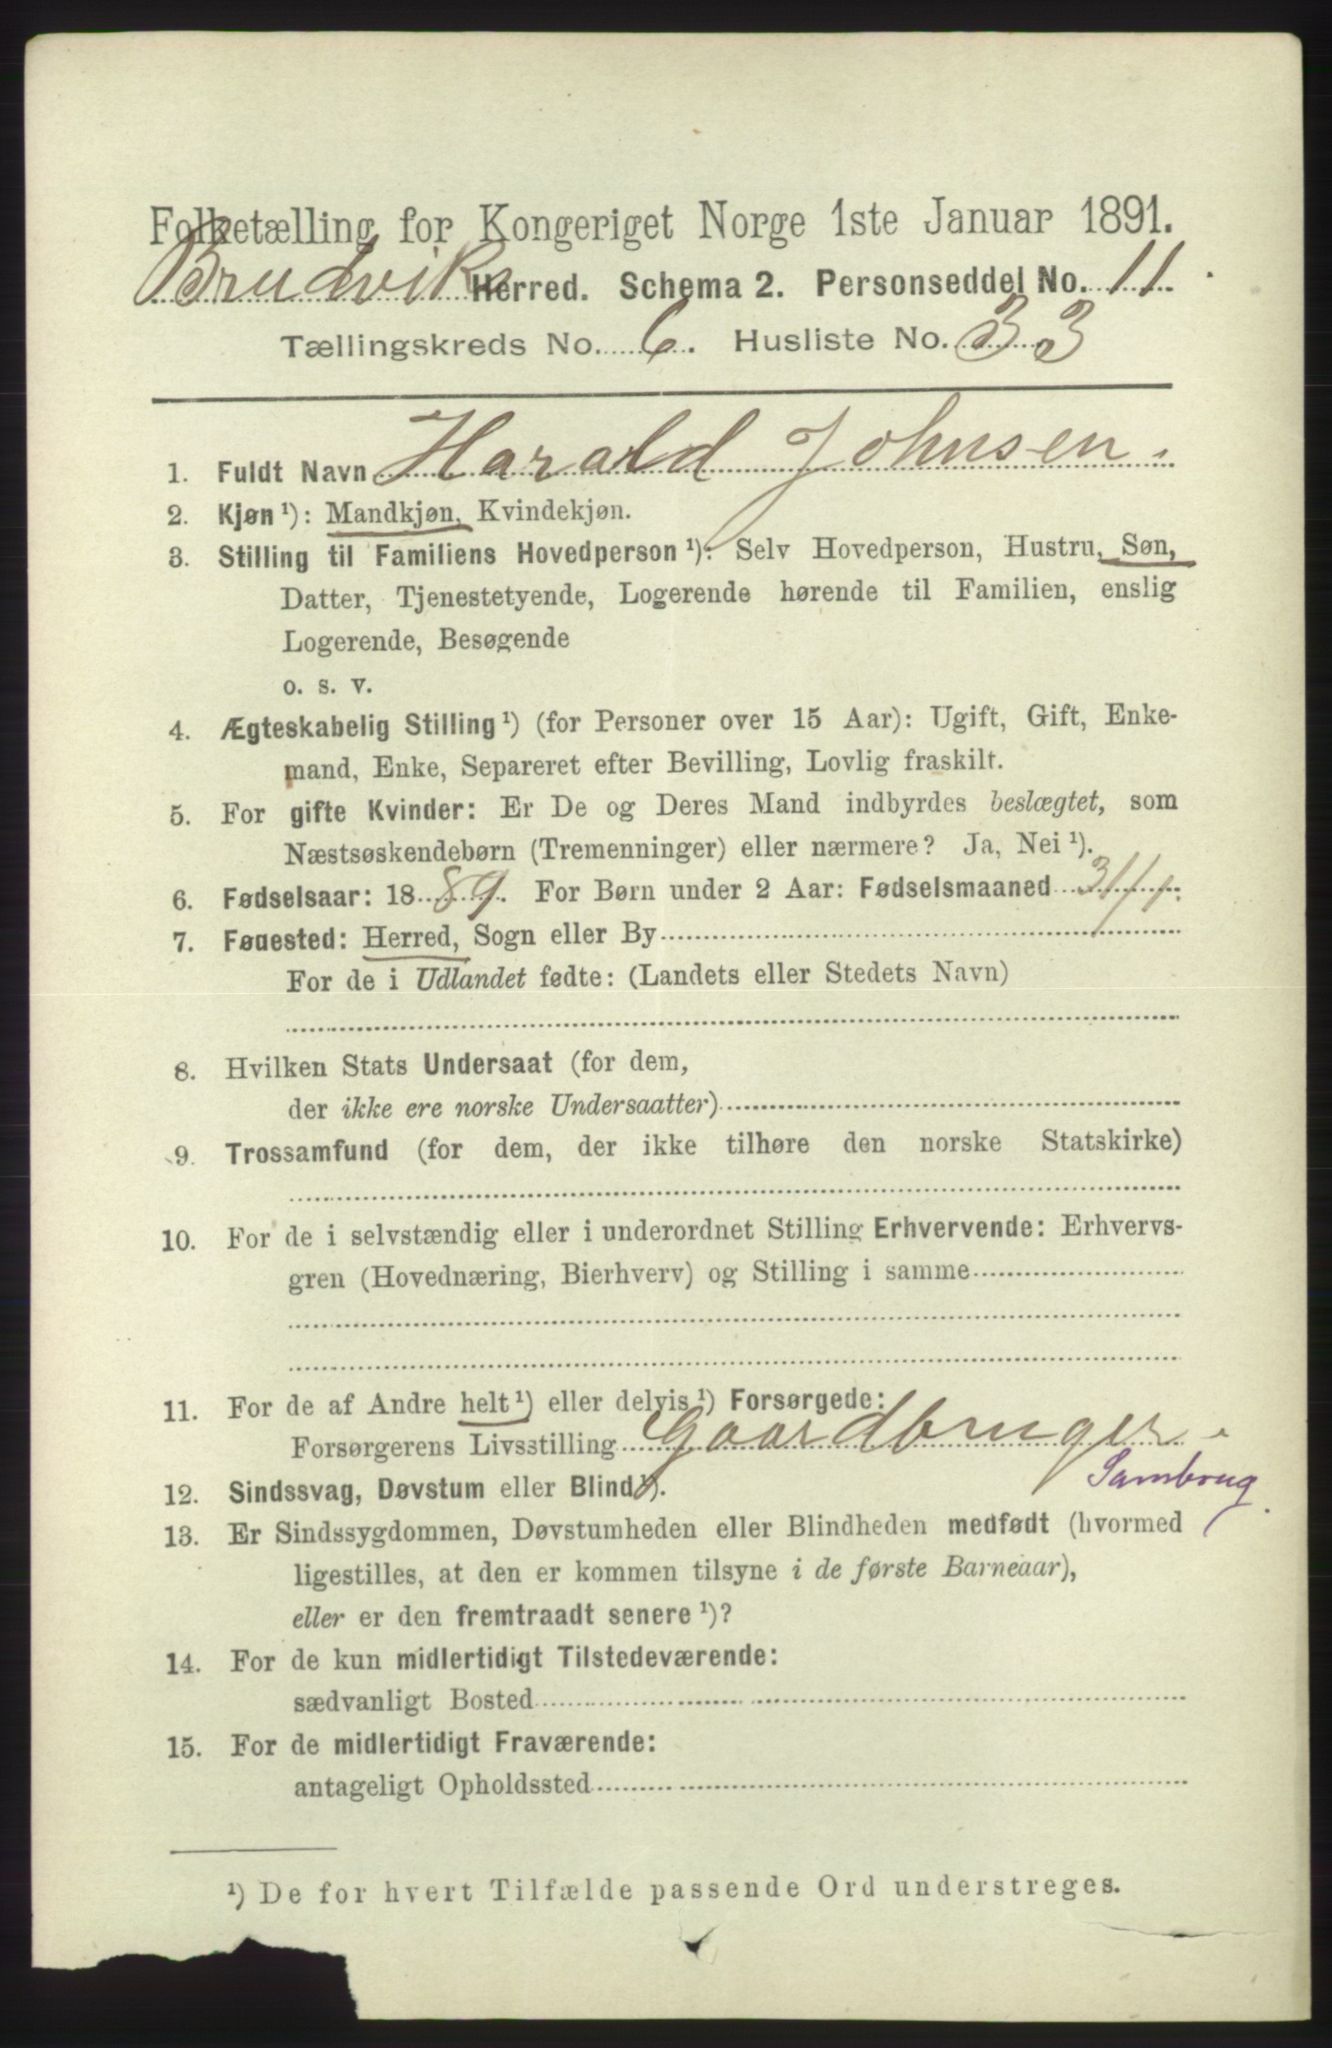 Folketælling for Kongeriget Norge 1ste Januar 1891.
Brudviks Herred. Schema 2. Personseddel No. 11.
Tællingskreds No. 6. Husliste No. 33
1. Fuldt Navn Harald Johnsen.
2. Kjøn ¹): Mandkjøn, Kvindekjøn.
3. Stilling til Familiens Hovedperson ¹): Selv Hovedperson, Hustru, Søn,
Datter, Tjenestetyende, Logerende hørende til Familien, enslig
Logerende, Besøgende
o. s. v.
4. Ægteskabelig Stilling ¹) (for Personer over 15 Aar): Ugift, Gift, Enke-
mand, Enke, Separeret efter Bevilling, Lovlig fraskilt.
5. For gifte Kvinder: Er De og Deres Mand indbyrdes beslægtet, som
Næstsøskendebørn (Tremenninger) eller nærmere? Ja, Nei ¹).
6. Fødselsaar: 1889. For Børn under 2 Aar: Fødselsmaaned 31/1.
7. Føuested: Herred, Sogn eller By
For de i Udlandet fødte: (Landets eller Stedets Navn)
8. Hvilken Stats Undersaat (for dem,
der ikke ere norske Undersaatter)
9. Trossamfund (for dem, der ikke tilhøre den norske Statskirke)
10. For de i selvstændig eller i underordnet Stilling Erhvervende: Erhvervs-
gren (Hovednæring, Bierhverv) og Stilling i samme
11. For de af Andre helt ¹) eller delvis ¹) Forsørgede:
Forsørgerens Livsstilling Gaardbruger.
Sambrug
12. Sindssvag, Døvstum eller Blind ¹).
13. Er Sindssygdommen, Døvstumheden eller Blindheden medfødt (hvormed
ligestilles, at den er kommen tilsyne i de første Barneaar),
eller er den fremtraadt senere ¹)?
14. For de kun midlertidigt Tilstedeværende:
sædvanligt Bosted
15. For de midlertidigt Fraværende:
antageligt Opholdssted
¹) De for hvert Tilfælde passende Ord understreges.